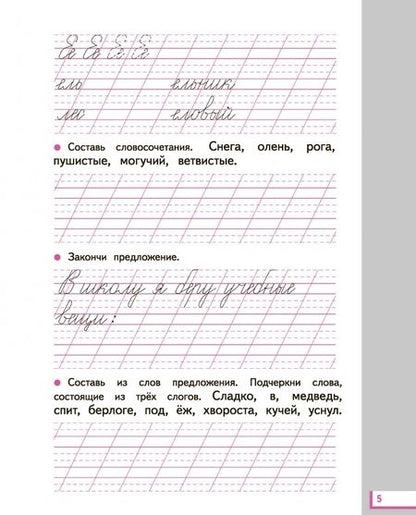 Ее Ее Ее Ее
ель ельник
лес еловый
Составь словосочетания. Снега, олень, рога,
пушистые, могучий, ветвистые.
Закончи предложение.
В школу я беру учебные
вещи:
Составь из слов предложения. Подчеркни слова,
состоящие из трёх слогов. Сладко, в, медведь,
спит, берлоге, под, ёж, хвороста, кучей, уснул.
5